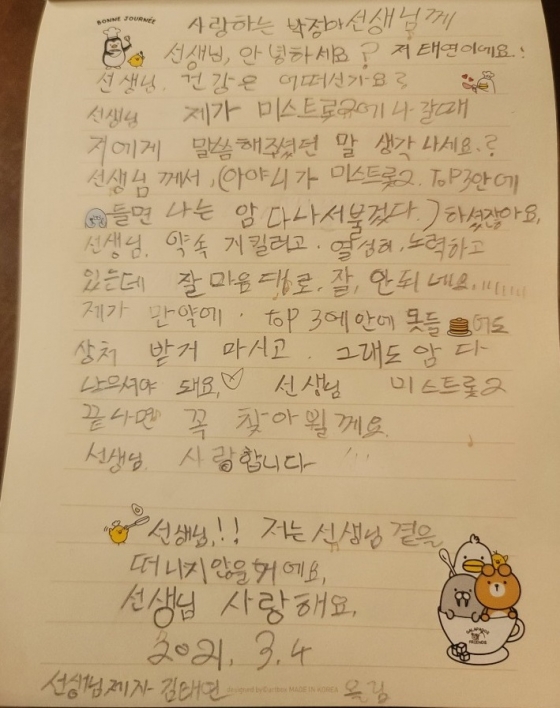 BONNE JOURNÉE
사랑하는 박정아선생님께
선생님, 안녕하세요? 저 태연이에요!
선생님. 건강은 어떠신가요?
선생님 제가 미스트롯2에 나갈때
저에게 말씀해주셨던 말 생각나세요.?
선생님께서, (아야 니가 미스트롯2. TOP3안에
들면 나는 암 다 나서불겄다.) 하셨잖아요,
선생님. 약속 지킬려고. 열심히. 노력하고
있는데 잘 마음대로, 잘, 안되네요,
제가 만약에. top 3에안에 못들어도
상처 받거 마시고. 그래도 암 다
나으셔야 돼요,♡ 선생님 미스트롯2
끝나면 꼭 찾아뵐께요.
선생님. 사랑합니다
선생님,!! 저는 선생님 곁을
떠니지않을거에요,
선생님 사랑해요,
2021. 3. 4
선생님제자 김태연 올림
designed by MADE IN KOREA
FRIENDS